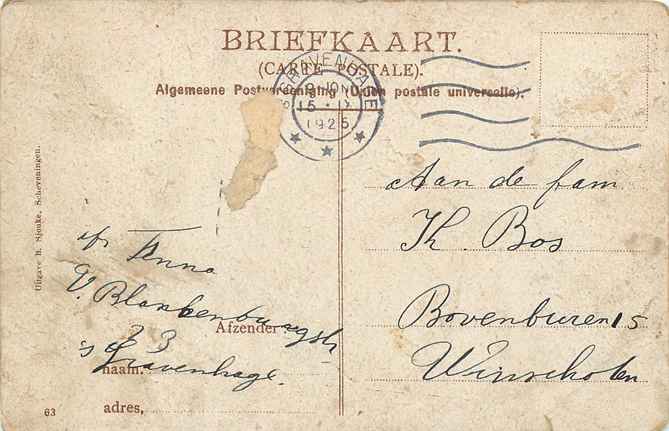 BRIEFKAART.
(CARTE POSTALE).
Algemeene Postvereeniging (Union postale universelle).
'S GRAVENHAGE
15
1925
Aan de fam
K. Bos
Bovenburen 15
Winschoten
Afz Anna
V. Blankenburgstr
33
's Gravenhage.
Afzender
naam:
adres,
63
Uitgave B. Sjouke, Scheveningen.